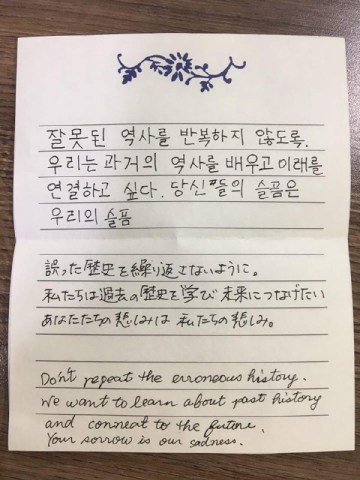 잘못된 역사를 반복하지 않도록.
우리는 과거의 역사를 배우고 미래를
연결하고 싶다. 당신들의 슬픔은
우리의 슬픔
誤った歴史を繰り返さないように。
私たちは過去の歴史を学び未来につなげたい
あなたたちの悲しみは 私たちの悲しみ。
Don't repeat the erroneous history.
We want to learn about past history
and connect to the future.
Your sorrow is our sadness.